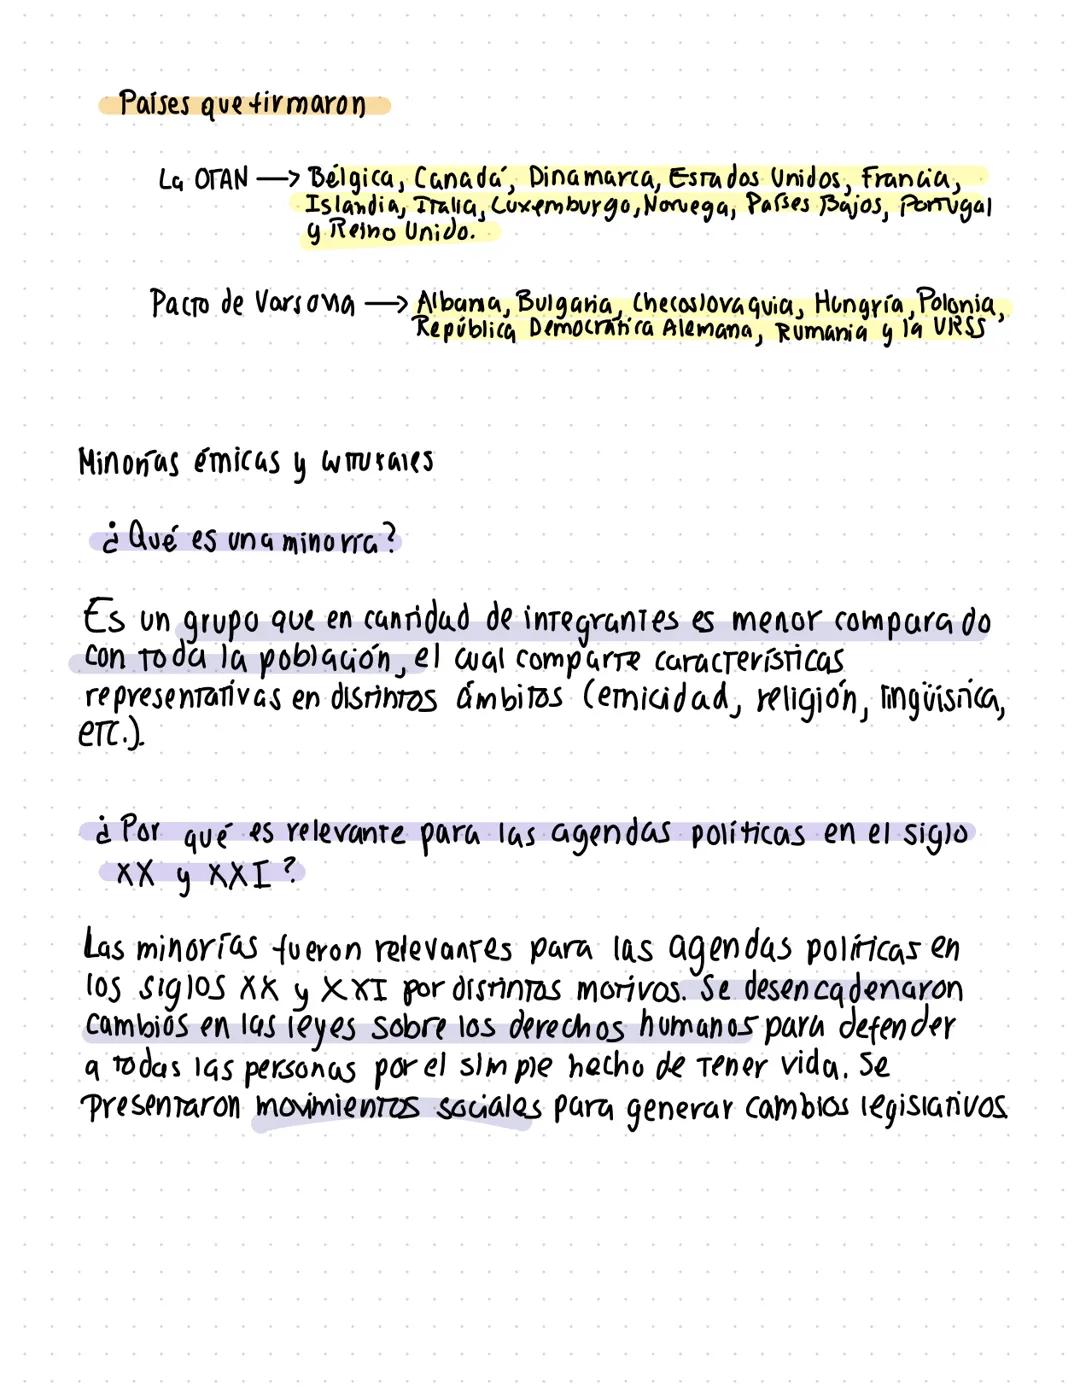 Países que firmaron
La OTAN → Bélgica, Canadá, Dinamarca, Estados Unidos, Francia,
Islandia, Italia, Luxemburgo, Noruega, Países Bajos, Portugal
y Reino Unido.
Pacto de Varsovia → Albania, Bulgaria, Checoslovaquia, Hungría, Polonia,
República Democrática Alemana, Rumania y la URSS
Minorías étnicas y culturales
¿Qué es una minoría?
Es un grupo que en cantidad de integrantes es menor comparado
con toda la población, el cual comparte características
representativas en distintos ámbitos (etnicidad, religión, lingüística,
etc.).
¿Por qué es relevante para las agendas políticas en el siglo
XX y XXI?
Las minorías fueron relevantes para las agendas políticas en
los siglos XX y XXI por distintos motivos. Se desencadenaron
cambios en las leyes sobre los derechos humanos para defender
a todas las personas por el simple hecho de tener vida. Se
presentaron movimientos sociales para generar cambios legislativos